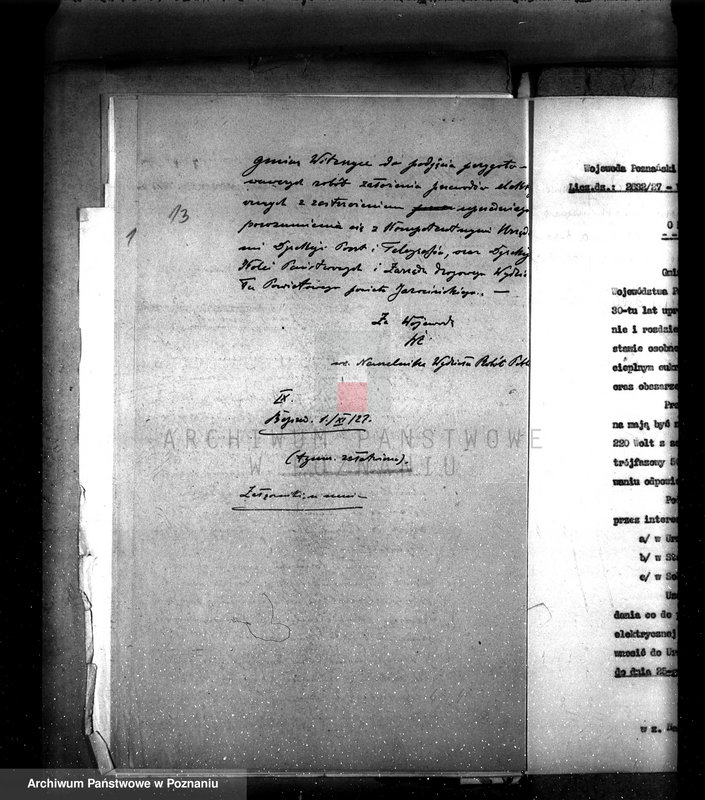 13
1
gminą Witaszyce do podjęcia przygoto-
wawczych robót założenia przewodów elektr
ycznych z zastrzeżeniem uprzedniego
porozumienia się z Kompetentnymi Urzęd
ami Dyrekcji Poczt i Telegrafów, oraz Dyrekcji
Kolei Państwowych i Zarządu Drogowego Wydzia
łu Powiatowego powiatu Jarocińskiego. —
Za Wojewodę
wz. Naczelnika Wydziału Robót Publ
IX.
1/XI/27.
Załączniki u mnie
ARCHIWUM PAŃSTWOWE
W POZNANIU
Wojewoda Poznański
Licz.dz.: 2832/27 -
O
Gmi
Województwa P
30-tu lat upr
nie i rozdzie
stawie osobne
cieplnym cukr
oraz obszarze
Prz
na mają być
220 Wolt z
trójfazowy 50
waniu odpowie
Po
przez interes
a/ w Urz
b/ w St
c/ w So
Uza
dania co do
elektrycznej
wnosić do Urz
do dnia 25-g
w z. Na
Archiwum Państwowe w Poznaniu